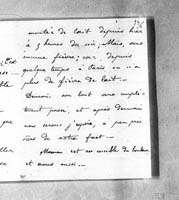 montée de lait depuis hier
à 3 heures du soir, mais, sans
aucune fièvre; car, depuis
quelque temps à Paris on n'a
plus de fièvre de lait...
Demain, son lait sera
posé, et après demain
nous serons, j'espère, à peu près
sûrs de notre fait...
Maman est au comble du bonheur
et nous aussi...